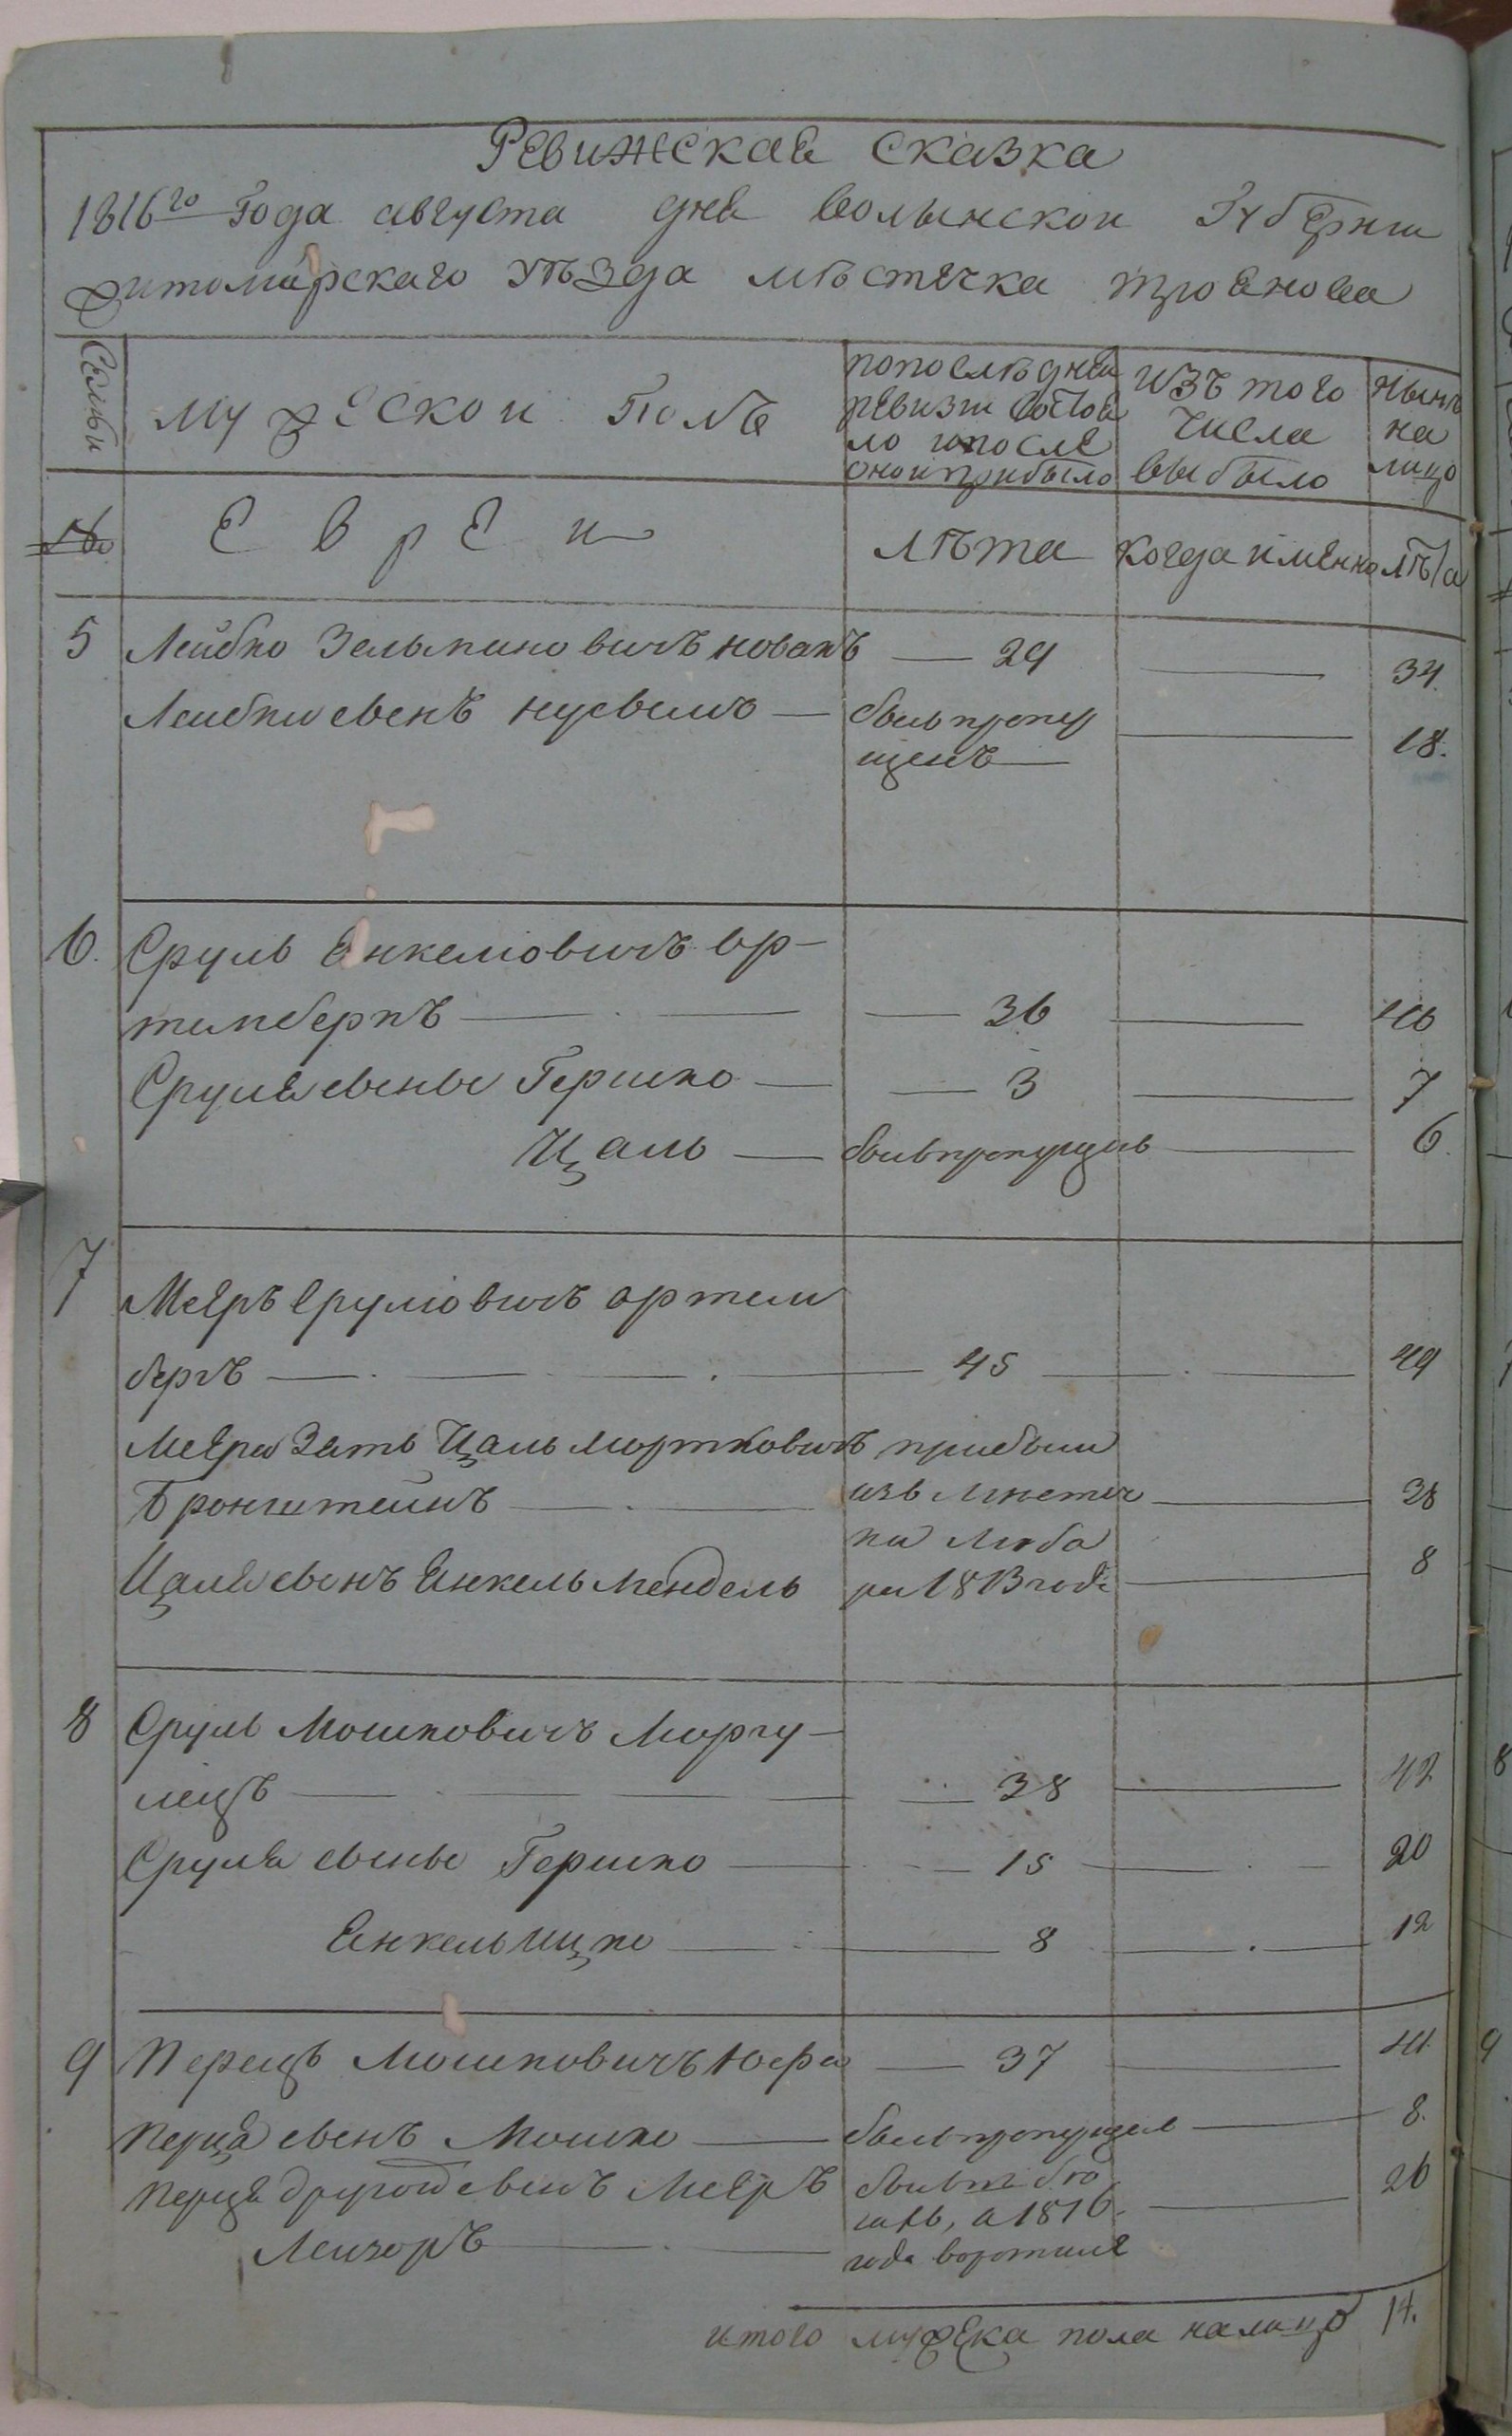 Ревижская сказка
1816го Года августа дня Волынской Губернии
Житомирского уѣзда мѣстечка Троянова
Семьи
мужеской Полъ
по последней ревизии состояло и после оной прибыло
изъ того числа выбыло
нынѣ на лицо
№ Евреи лѣта когда именно лѣта
5 Лейбко Зельманович новакъ — 29 — 34.
Лейбки сынъ нусынъ — былъ пропу
щенъ — 18.
6. Сруль Енкелiовичъ ор-
темберкъ — 36 — 40
Сруля сыны Гершко — 3 — 7
Цаль — былъ пропущенъ — 6.
7 Меяръ Срулiовичъ ортем
бергъ — 45 — 49
Меяра зять Цаль мортковичъ прибыли
Бронштейнъ — изъ мистеч — 28
ка Люба
Цаля сынъ Янкель мендель ра 1813 годе — 8
8 Сруль Мошковичъ Маргу-
лецъ — 38 — 42
Сруля сыны Гершко — 15 — 20
Янкель ицко — 8 — 12
9 Перецъ Мошковичъ Юфра — 37 — 41.
Перца сынъ Мошко — былъ пропущен — 8.
Перца другой сынъ Меяръ былъ в бѣ — 26
Лейзоръ — гахъ, а 1816.
года воротился
итого мужска пола налицо 14.